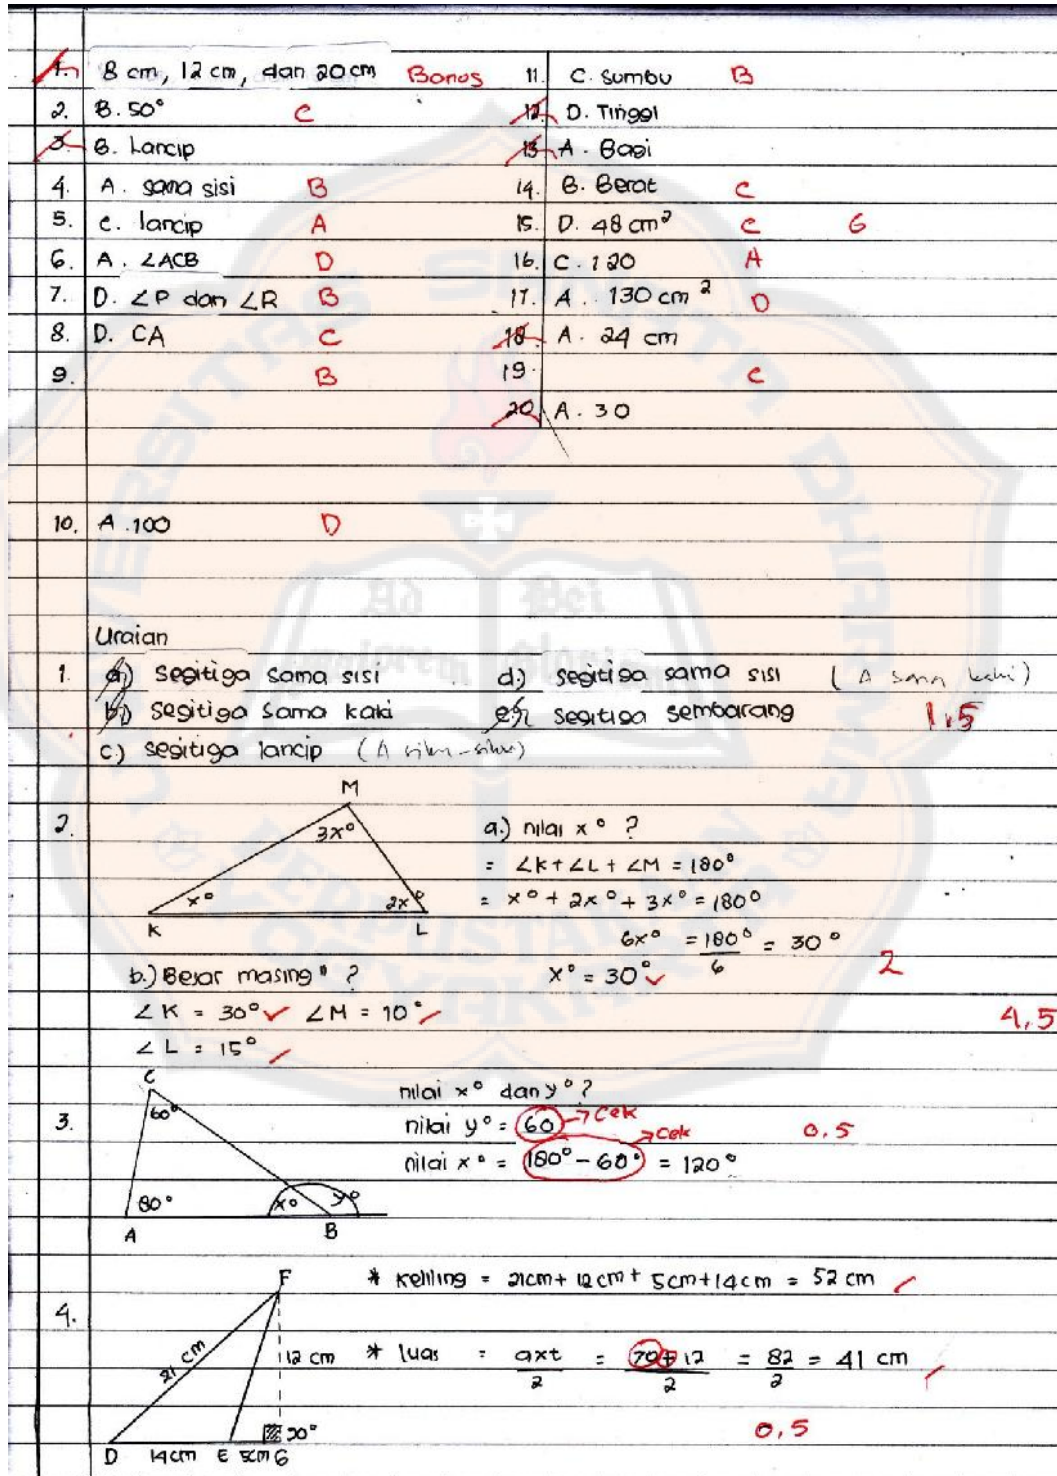 1. 8 cm, 12 cm, dan 20 cm Bonus
2. B. 50° C
3. B. Lancip
4. A. sama sisi B
5. C. lancip A
6. A. ∠ACB D
7. D. ∠P dan ∠R B
8. D. CA C
9. B
10. A. 100 D
11. C. sumbu B
12. D. Tinggi
13. A. Bagi
14. B. Berat C
15. D. 48 cm² C 6
16. C. 120 A
17. A. 130 cm² D
18. A. 24 cm
19. C
20. A. 30
Uraian
1. a) segitiga sama sisi
b) segitiga sama kaki
c) segitiga lancip (Δ siku-siku)
d.) segitiga sama sisi (Δ sama kaki)
e) segitiga sembarang 1,5
2. M
3x°
x° 2x°
K L
a.) nilai x° ?
= ∠K + ∠L + ∠M = 180°
= x° + 2x° + 3x° = 180°
6x° = 180° = 30°
6
x° = 30° 2
b.) Besar masing" ?
∠K = 30° ∠M = 10° 4,5
∠L = 15°
3. C
60°
80° x° y°
A B
nilai x° dan y° ?
nilai y° = 60 → Cek 0,5
nilai x° = 180° - 60° = 120° → Cek
4. F
21 cm 12 cm
90°
D 14cm E 5cm G
* Keliling = 21cm + 12cm + 5cm + 14cm = 52 cm
* luas = axt = 70 + 12 = 82 = 41 cm
2 2 2
0,5
UNIVERSITAS SANATA DHARMA
Ad Dei
maiorem Gloriam
PERPUSTAKAAN
YOGYAKARTA